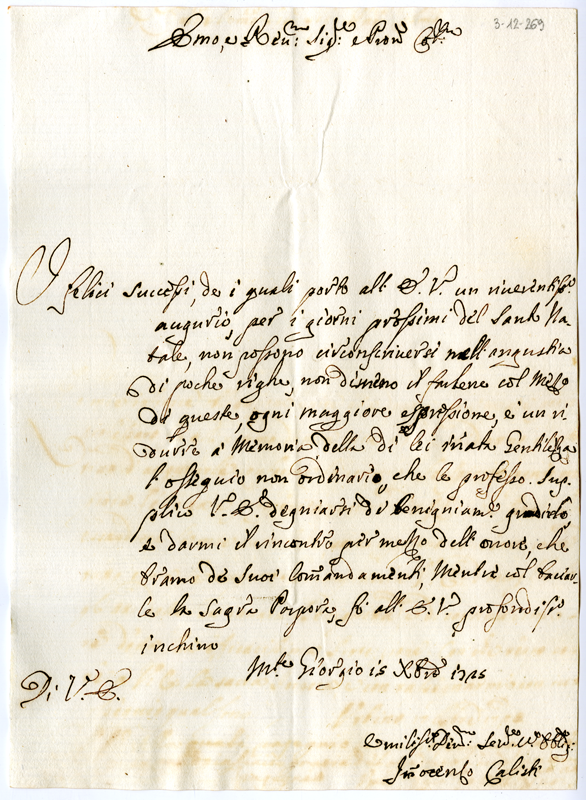 3-12-269
Emo, e Revmo: Sig:re e Pron Col:mo
I felici successi, de i quali porto all' E. V. un riverentiss:o
augurio, per i giorni prossimi del Santo Na-
tale, non possono circonscriversi nell'angustia
di poche righe, non dimeno il farlene col mezzo
di queste ogni maggiore espressione, è un ri-
durre à Memoria della di lei innata Gentilezza
l'ossequio non ordinario, che le professo. Sup-
plico V. E. degniarsi di benigniam:e gradirlo,
e darmi il rincontro per mezzo dell'onore, che
bramo de suoi Comandamenti, Mentre col baciar-
le la Sagra Porpora, fò all' E. V. profondiss:o
inchino
Mte Giorgio 15 Xbre 1725
Di V. E.
Umiliss:o Div:mo Ser:re Obblig:
Innocenso Calisti